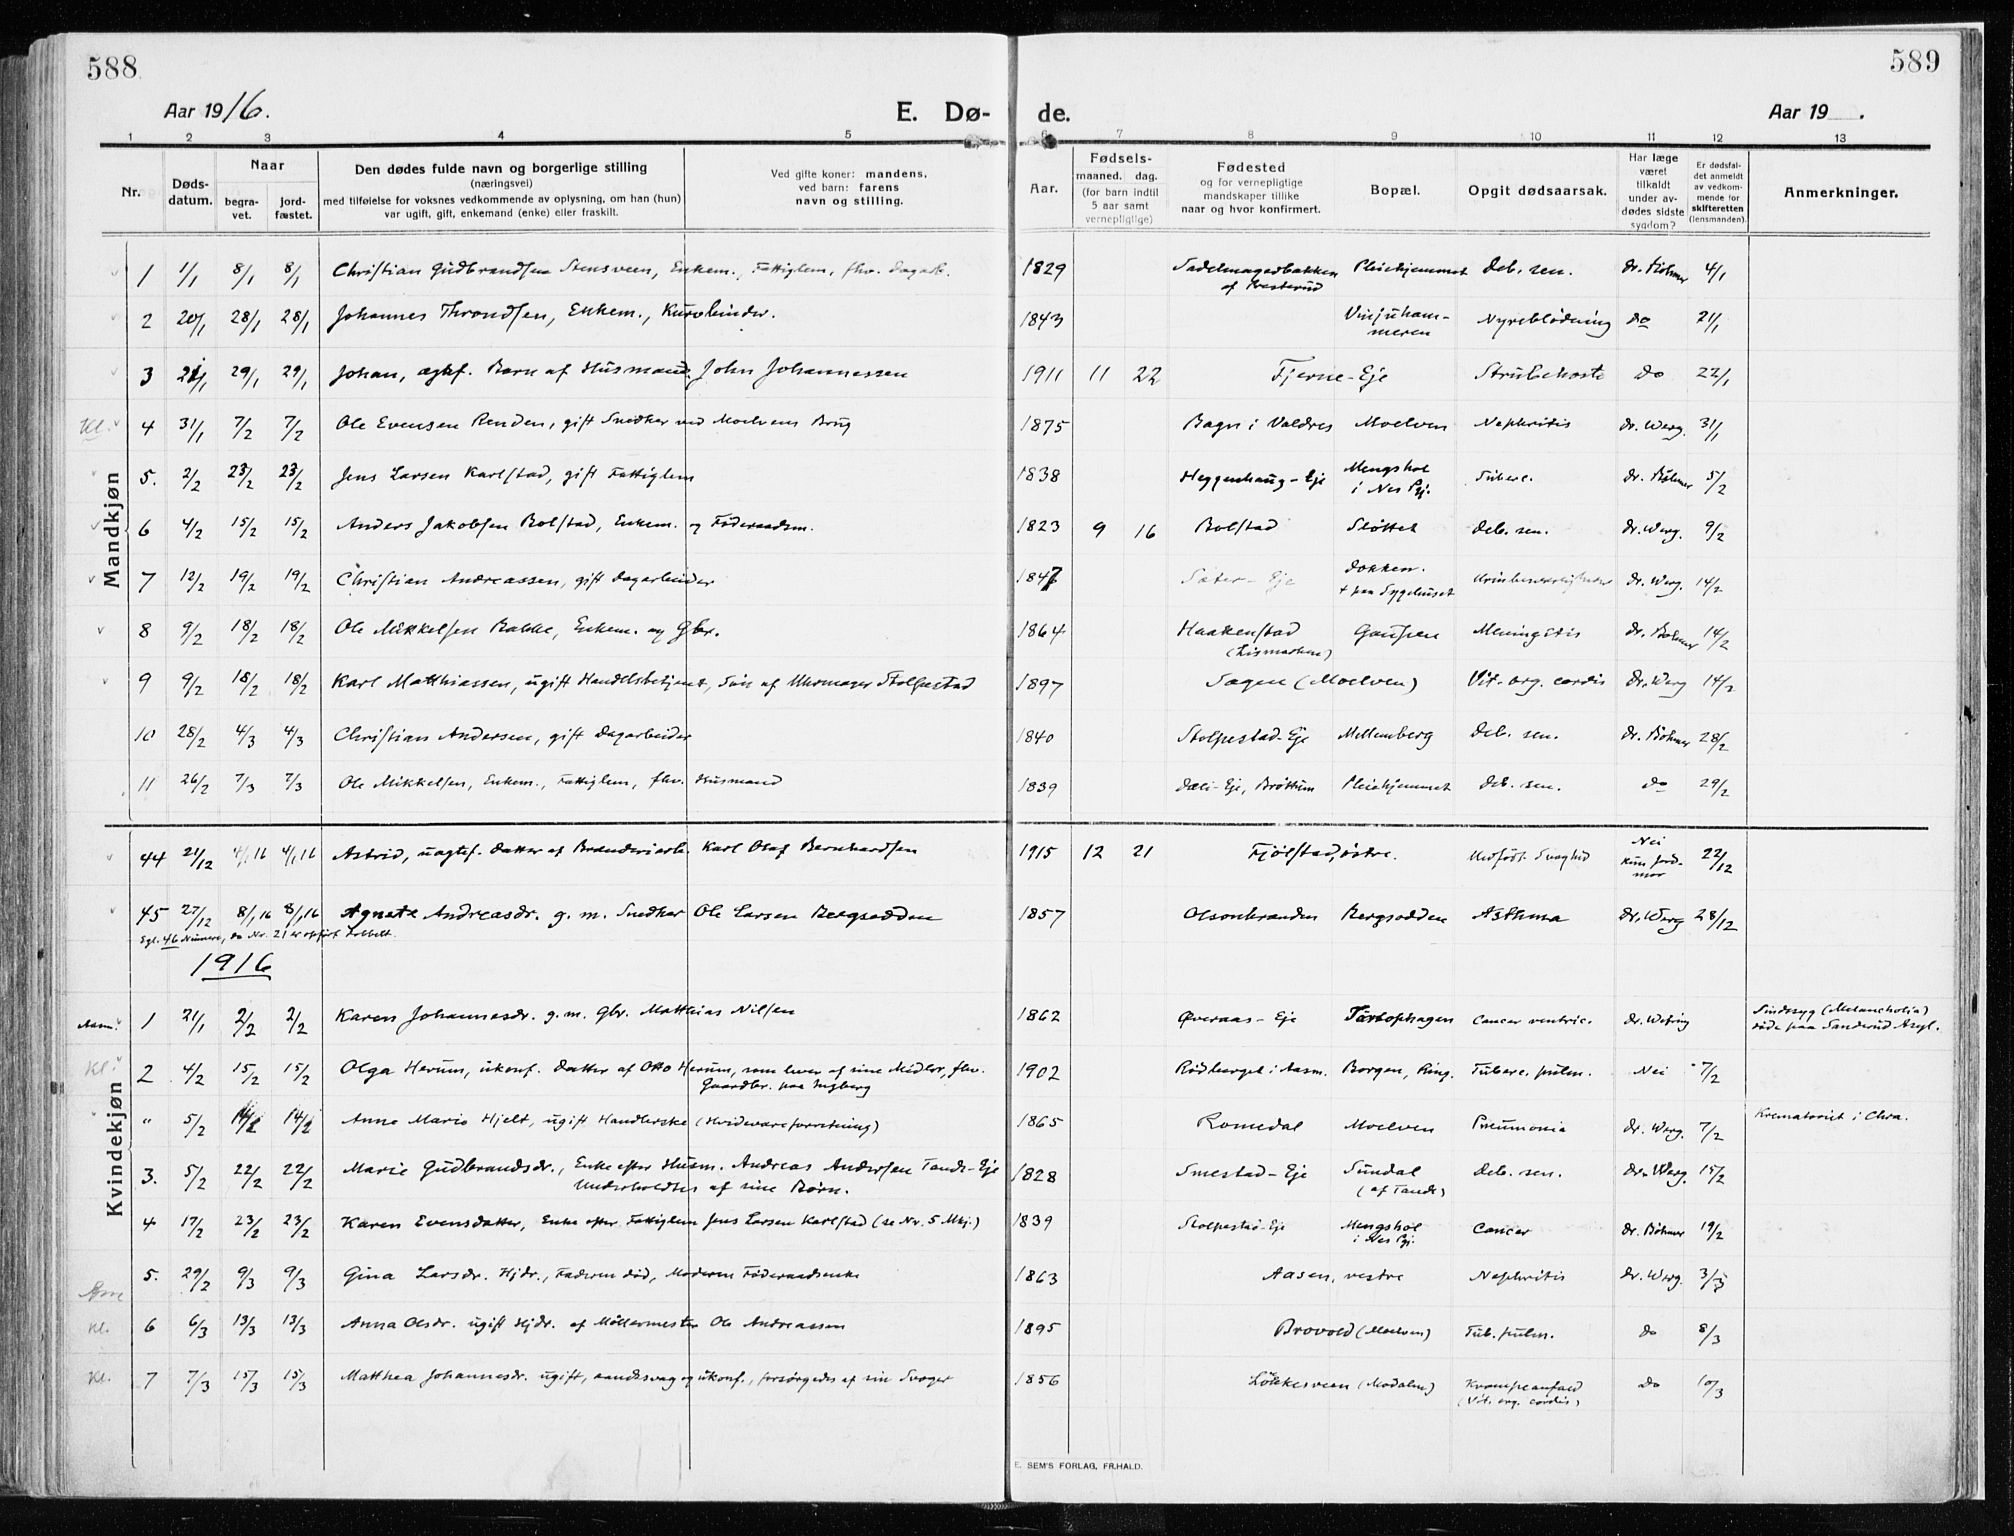 588
589
Aar 1916.
E. Dø-
de.
Aar 19 .
1 2 3 4 5 6 7 8 9 10 11 12 13
Nr.
Døds-
datum.
Naar
begra-
vet.
jord-
fæstet.
Den dødes fulde navn og borgerlige stilling
(næringsvei)
med tilføielse for voksnes vedkommende av oplysning, om han (hun)
var ugift, gift, enkemand (enke) eller fraskilt.
Ved gifte koner: mandens,
ved barn: farens
navn og stilling.
Aar.
Fødsels-
maaned. dag.
(for barn indtil
5 aar samt
vernepligtige)
Fødested
og for vernepligtige
mandskaper tillike
naar og hvor konfirmert.
Bopæl.
Opgit dødsaarsak.
Har læge
været
tilkaldt
under av-
dødes sidste
sygdom?
Er dødsfal-
det anmeldt
av vedkom-
mende for
skifteretten
(lensmanden).
Anmerkninger.
Mandkjøn
1 1/1 8/1 8/1 Christian Gudbrandsen Stensveen, Enkem., Fattiglem, fhv. Dagarb. 1829 Sadelmagerbakken Pleiehjemmet Deb. sen. Dr. Böhmer 4/1
2 20/1 28/1 28/1 Johannes Throndsen, Enkem., Kurvbinder. 1843 Vinjuham- Nyreblødning do 21/1
meren
3 21/1 29/1 29/1 Johan, ægtef. Barn af Husmand John Johannessen 1911 11 22 Fjerne-Eje Strubehoste do 22/1
Kl. 4 31/1 7/2 7/2 Ole Evensen Renden, gift Snedker ved Moelvens Brug 1875 Bagn i Valdres Moelven Nephritis Dr. Werg. 31/1
5. 2/2 23/2 23/2 Jens Larsen Karlstad, gift Fattiglem 1838 Heggenhaug-Eje Mengshol Tuberc. Dr. Böhmer 5/2
i Nes Pgj.
6 4/2 15/2 15/2 Anders Jakobsen Bolstad, Enkem. og Føderaadsm. 1823 9 16 Bolstad Slottet Deb. sen. Dr. Werg. 9/2
7 12/2 19/2 19/2 Christian Andreassen, gift Dagarbeider 1847 Sæter-Eje Dokken. Dr. Werg. 14/2
+ paa Sygehuset
8 9/2 18/2 18/2 Ole Mikkelsen Bakke, Enkem. og Gbr. 1864 Haakenstad Gaupen Meningitis Dr. Böhmer 14/2
(Lismarken)
9 9/2 18/2 18/2 Karl Matthiassen, ugift Handelsbetjent, Søn af Uhrmager Stolpestad 1897 Sagen (Moelven) Vit. org. cordis Dr. Werg 14/2
10 28/2 4/3 4/3 Christian Andersen, gift Dagarbeider 1840 Stolpestad-Eje Mellemberg Deb. sen. Dr. Böhmer 28/2
11 26/2 7/3 7/3 Ole Mikkelsen, Enkem., Fattiglem, fhv. Husmand 1839 Dæli-Eje, Brøttum Pleiehjemmet Deb. sen. do 29/2
44 21/12 4/1 16 4/1 16 Astrid, uægtef. Datter af Branderiarb. Karl Olaf Bernhardsen 1915 12 21 Fjølstad, østre. Medfødt Svaghed Nei 22/12
kun jord-
mor
45 27/12 8/1 16 8/1 16 Agnete Andreasdr. g. m. Snedker Ole Larsen Bergsodden 1857 Olsonbranden Bergsodden Asthma Dr. Werg 28/12
Egl. 46 Numere, da Nr. 21 er opført dobbelt.
1916
Kvindekjøn
Aasm. 1 21/1 2/2 2/2 Karen Johannesdr. g. m. Gbr. Matthias Nilsen 1862 Øveraas-Eje Cancer ventric. Sindssyg (Melancholia)
døde paa Sanderud Asyl.
Kl. 2 4/2 15/2 15/2 Olga Herum, ukonf. Datter af Otto Herum, som lever af sine Midler, fhv. 1902 Rødberget i Aasm. Borgen, Ring. Tuberc. pulm. Nei 7/2
Gaardbr. paa
" 5/2 14/2 14/2 Anne Marie Hjelt, ugift Handlerske (Hvidevareforretning) 1865 Romedal Moelven Pneumonia Dr. Werg. 7/2 Krematoriet i Chra.
3. 5/2 22/2 22/2 Marie Gudbrandsdr., Enke efter Husm. Andreas Andersen Tande-Eje 1828 Smestad-Eje Sundal Deb. sen. Dr. Werg. 15/2
Underholdtes af sine Børn. (af Tande)
4 17/2 23/2 23/2 Karen Evensdatter, Enke efter Fattiglem Jens Larsen Karlstad (se Nr. 5 Mkj.) 1839 Stolpestad-Eje Mengshol Cancer Dr. Böhmer 19/2
i Nes Pgj.
5. 29/2 9/3 9/3 Gina Larsdr. Hjdr., Faderen død, Moderen Føderaadsenke 1863 Aasen, vestre Nephritis Dr. Werg. 3/3
Kl. 6 6/3 13/3 13/3 Anna Olsdr. ugift Hjdr. af Møllermester Ole Andreassen 1895 Brovold (Moelven) Tub. pulm. do 8/3
Kl. 7 7/3 15/3 15/3 Matthea Johannesdr. ugift, aandssvag og ukonf., forsørgedes af sin Svoger 1856 Løkkesveen (Modalen) Krampeanfald do 10/3
(Vit. org. cordis)
E. SEM'S FORLAG, FR.HALD.